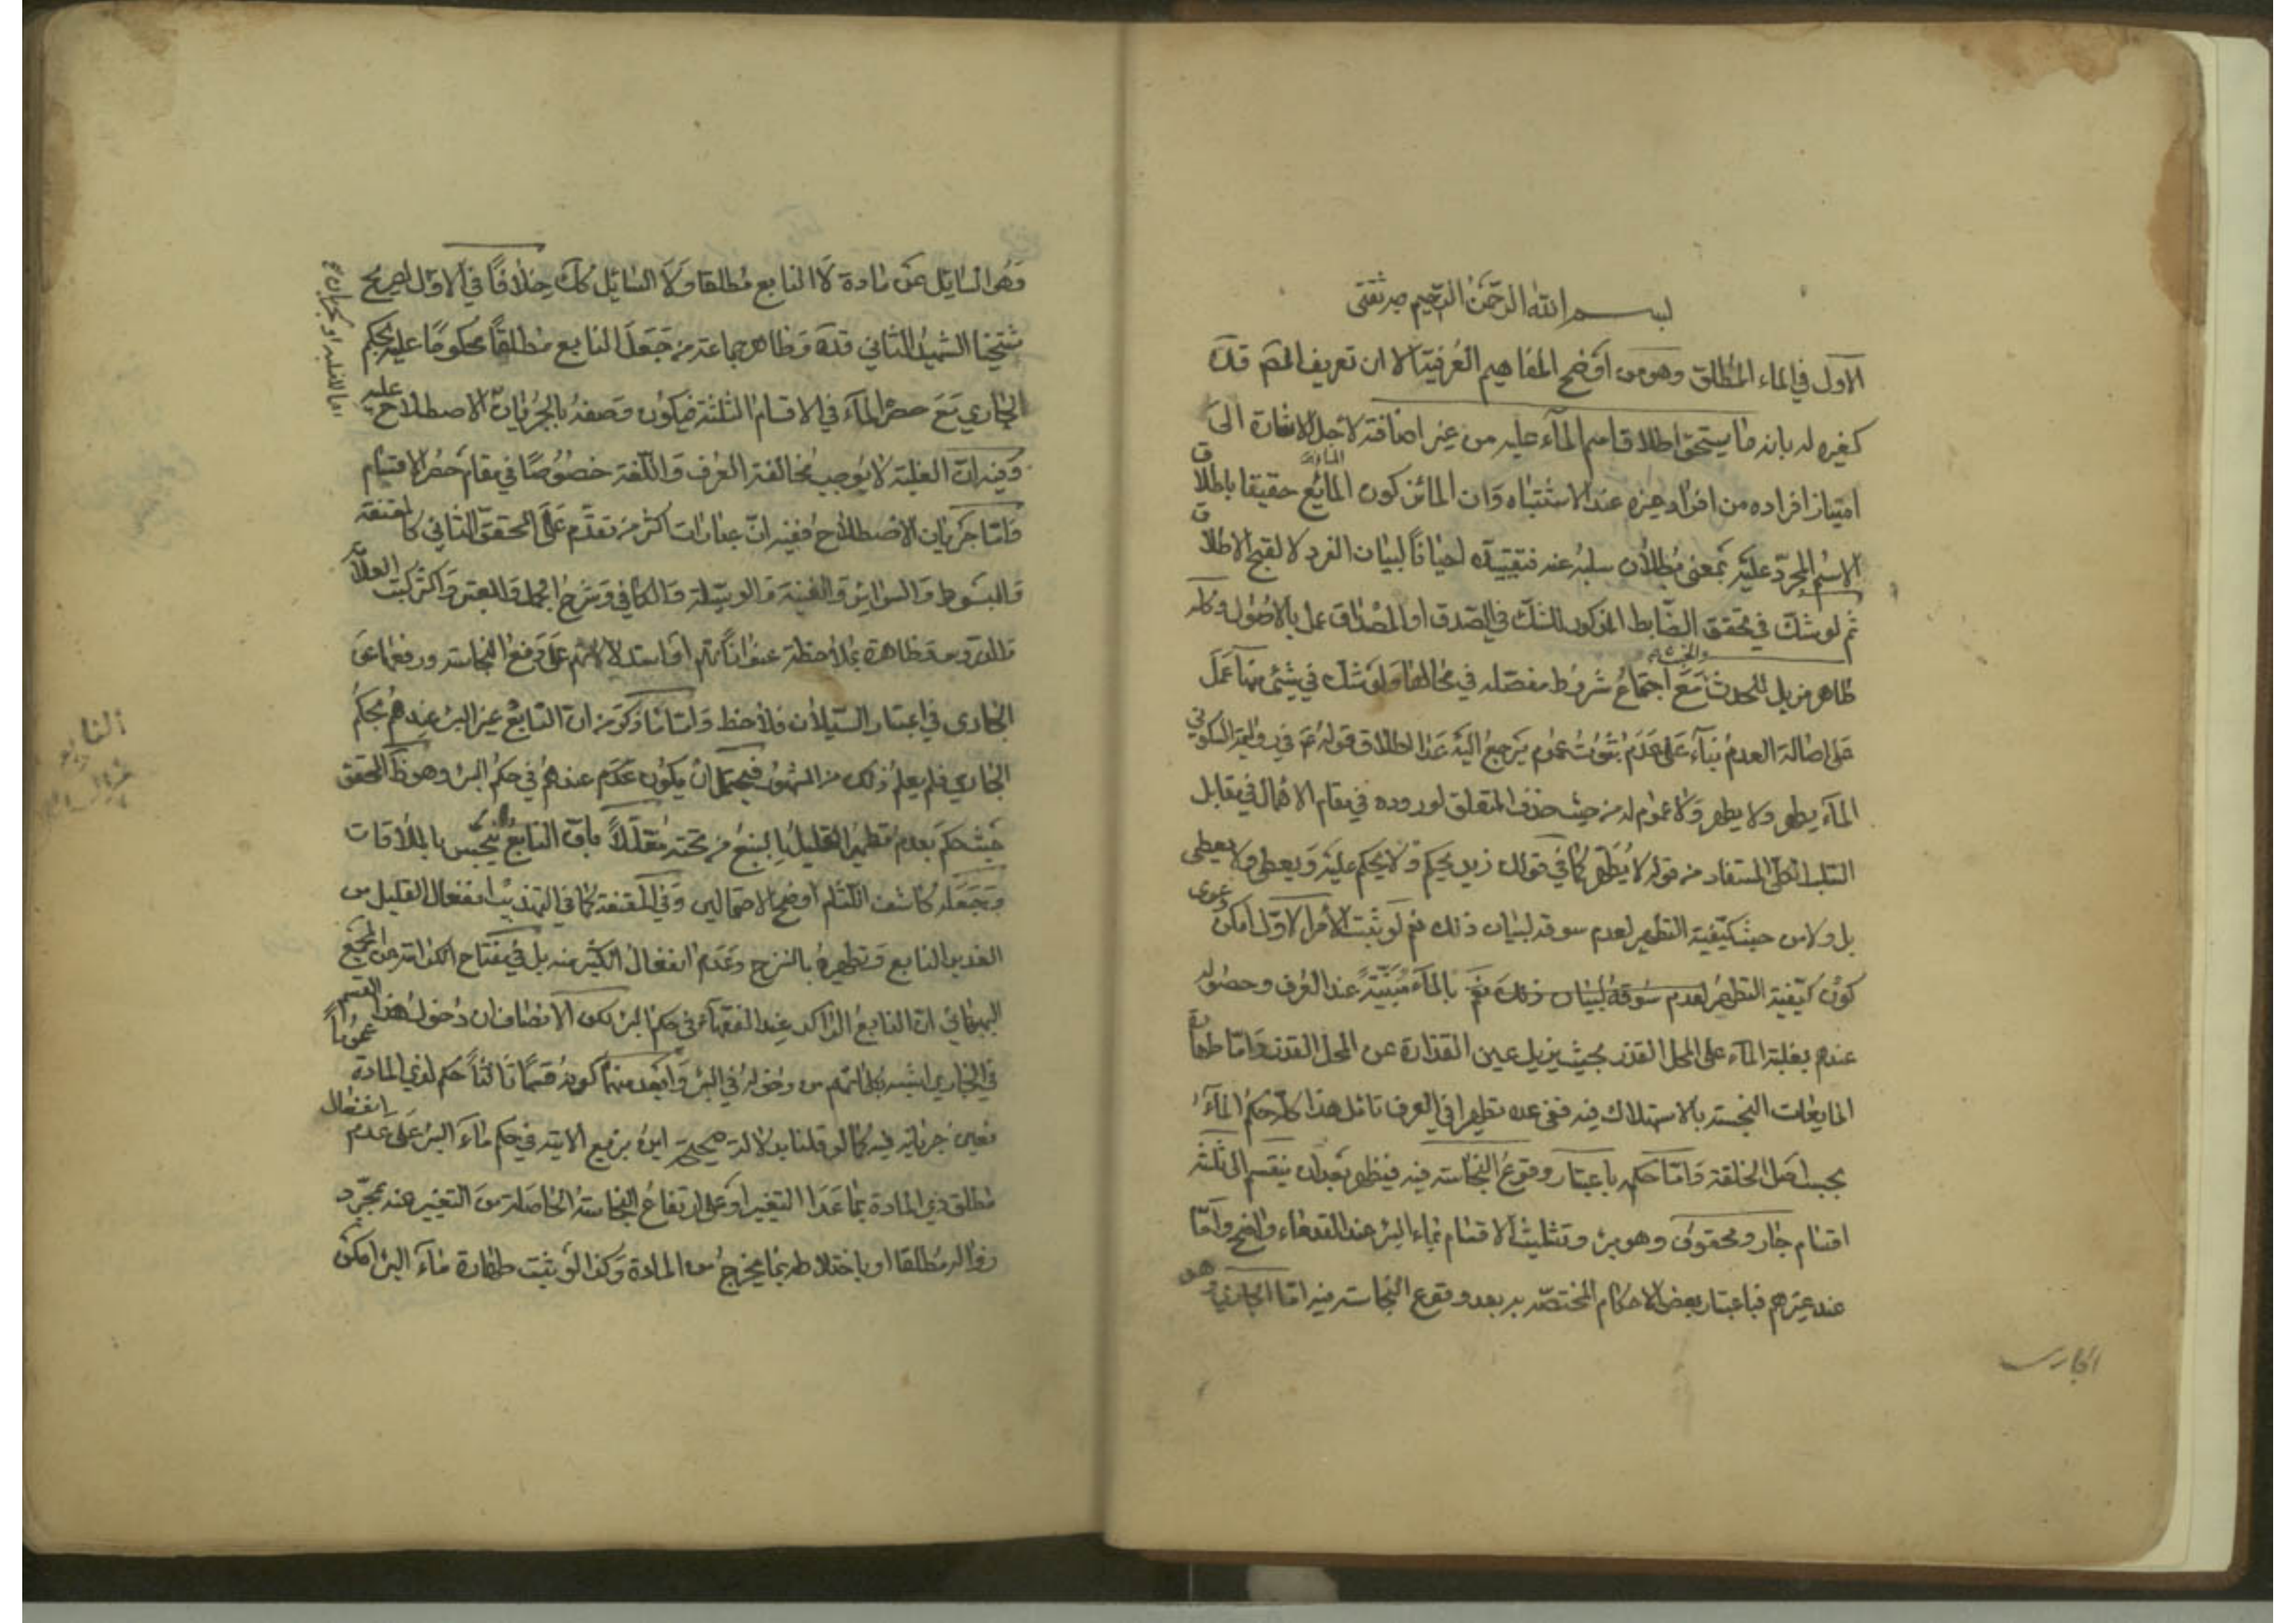 بسم الله الرحمن الرحيم وبه ثقتي
الاول في الماء المطلق وهو من اوضح المفاهيم العرفية الا ان تعريف المصم قده
كغيره له بانه ما يستحق اطلاق اسم الماء عليه من غير اضافة لاجل الاشارة الى
امتياز افراده من افراد غيره عند الاشتباه وان المائز كون المايع حقيقا باطلاق
الاسم المجرد عليه بمعنى بطلان سلبه عنه فتقييده احيانا لبيان الفرد لا لقبح الاطلاق
ثم لو شك في تحقق الضابط المذكور للشك في الصدق او المصداق عمل بالاصول وكله
طاهر مزيل للحدث والخبث مع اجتماع شروط مفصله في محالها ولو شك في شيئ منها عمل
على اصالة العدم بناء على عدم ثبوت عموم يرجع اليه عدا اطلاق قوله ع في رواية السكوني
الماء يطهر ولا يطهر ولا عموم له من حيث حذف المتعلق لوروده في مقام الاهمال في مقابل
السلب الكلي المستفاد من قوله لا يطهر كما في قولك زيد يحكم ولا يحكم عليه ويعطي ولا يعطى
بل ولا من حيث كيفية التطهير لعدم سوقه لبيان ذلك نعم لو ثبت الامر الاول امكن دعوى
كون كيفية التطهير لعدم سوقه لبيان ذلك نعم بالماء مبينة عند العرف وحصوله
عندهم بغلبة الماء على المحل القذر بحيث يزيل عين القذارة عن المحل القذر واما طهارة
المايعات النجسة بالاستهلاك فيه ففي عده تطهيرا في العرف تامل هذا كله حكم الماء
بحسب اصل الخلقة واما حكمه باعتبار وقوع النجاسة فيه فيظهر بعد ان ينقسم الى ثلثة
اقسام جار ومحقون وهو بئر وتثليث الاقسام بماء البئر عند القدماء واضح واما
عند غيرهم فباعتبار بعض الاحكام المختصة به بعد وقوع النجاسة فيه اما الجاري
الجاري
وهو السايل عن مادة لا النابع مطلقا ولا السايل كك خلافا في الاول لصريح
شيخنا الشهيد الثاني قده وظاهر جماعة من جعل النابع مطلقا محكوما عليه بحكم
الجاري مع حصر الماء في الاقسام الثلثة فيكون وصفه بالجريان الاصطلاح عليه
اما لاغلبية او لجريان
وفيه ان الغلبة لا يوجب مخالفة العرف واللغة خصوصا في مقام حصر الاقسام
واما جريان الاصطلاح ففيه ان عبارات اكثر من تقدم على المحقق الثاني كالمقنعة
والمبسوط والسرائر والغنية والوسيلة والكافي وشرح الجمل والمعتبر واكثر كتب العلامة
والدروس ظاهرة بملاحظة عنواناتهم او استدلالاتهم على دفع النجاسة ورفعها عن
الجاري في اعتبار السيلان فلاحظ واما ما ذكره من ان النابع غير البئر عندهم بحكم
الجاري فلم يعلم ذلك من المشهور فيحتمل ان يكون عندهم في حكم البئر وهو ظ المحقق
حيث حكم بعدم تطهير القليل بالنبع من تحته معللا بان النابع ينجس بالملاقات
وجعله كاشف اللثام اوضح الاحتمالين وفي المقنعة كما في التهذيب انفعال القليل من
الغدير النابع وتطهيره بالنزح وعدم انفعال الكثير منه بل في مفتاح الكرامة من المجمع
البهبهاني ان النابع الراكد عند الفقهاء في حكم البئر لكن الانصاف ان دخول هذا القسم
في الجاري اشبه بكلماتهم من دخوله في البئر وابعد منهما كونه قسما ثالثا حكم لذي المادة عموما
تعين جريانه فيه كما لو قلنا بدلالة صحيحة ابن بزيع الاتية في حكم ماء البئر على عدم انفعال
مطلق ذي المادة بما عدا التغير او على ارتفاع النجاسة الحاصلة من التغير عنه بمجرد
زواله مطلقا او باختلاطه بما يخرج من المادة وكذا لو ثبت طهارة ماء البئر امكن
النابع